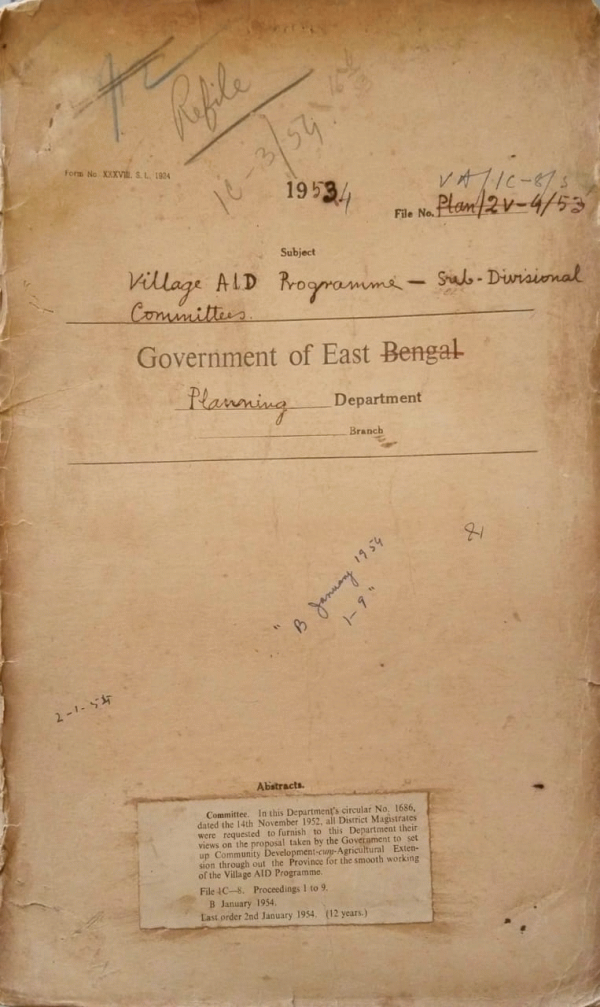 Refile
1C-3/54
Form No. XXXVIII. S. L., 1924
1953
VA/1C-8/5
File No. Plan/2V-9/53
Subject
Village AID Programme — Sub-Divisional
Committees.
Government of East Bengal
Planning Department
Branch
"B January 1954
1-9"
2-1-54
Abstracts.
Committee. In this Department's circular No. 1686,
dated the 14th November 1952, all District Magistrates
were requested to furnish to this Department their
views on the proposal taken by the Government to set
up Community Development-cum-Agricultural Exten-
sion through out the Province for the smooth working
of the Village AID Programme.
File 1C—8. Proceedings 1 to 9.
B January 1954.
Last order 2nd January 1954. (12 years.)